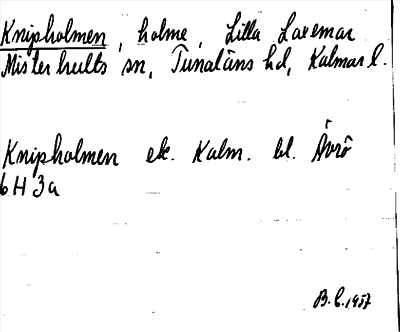 Knipholmen, holme, Lilla Laxemar
Misterhults sn, Tunaläns hd, Kalmar l.
Knipholmen ek. Kalm. bl. Ävrö
6H 3a
B.C. 1957